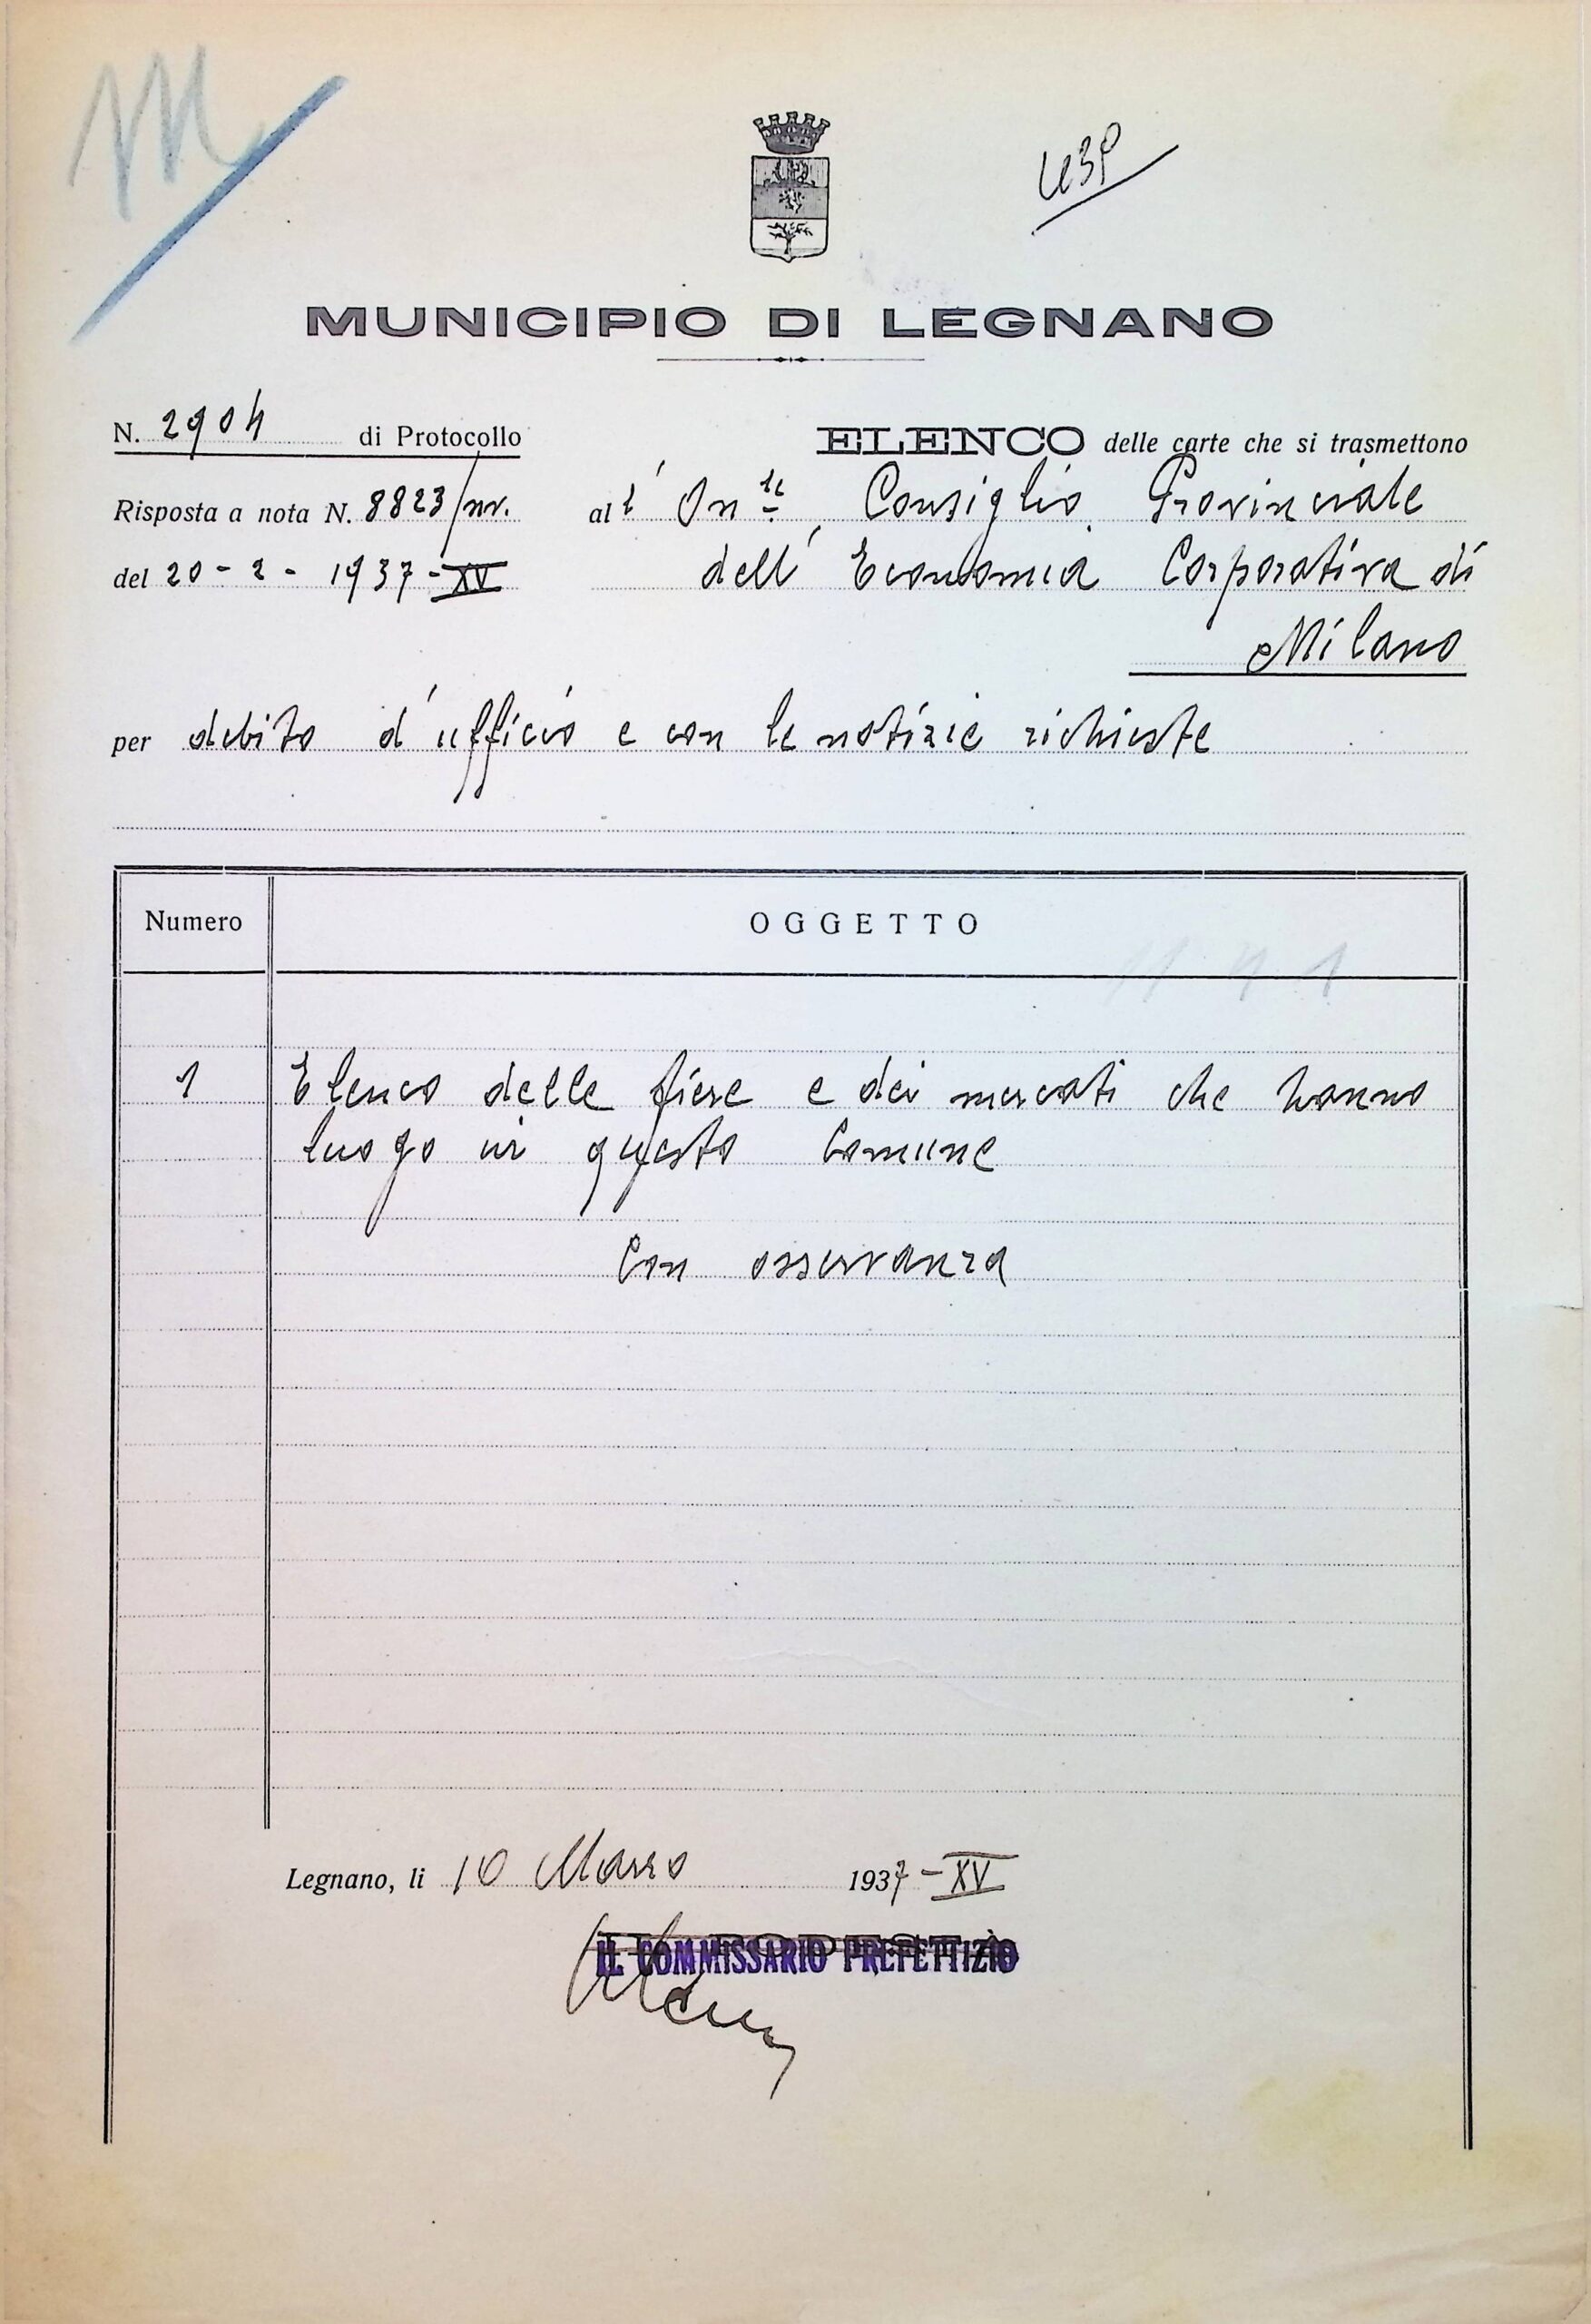 MUNICIPIO DI LEGNANO
N. 2904 di Protocollo
Risposta a nota N. 8823/nr.
del 20-2-1937-XV
ELENCO delle carte che si trasmettono
al l' On.le Consiglio Provinciale
dell' Economia Corporativa di
Milano
per debito d'ufficio e con le notizie richieste
Numero OGGETTO
1 Elenco delle fiere e dei mercati che hanno
luogo in questo Comune
Con osservanza
Legnano, li 10 Marzo 1937-XV
IL PODESTÀ
IL COMMISSARIO PREFETTIZIO